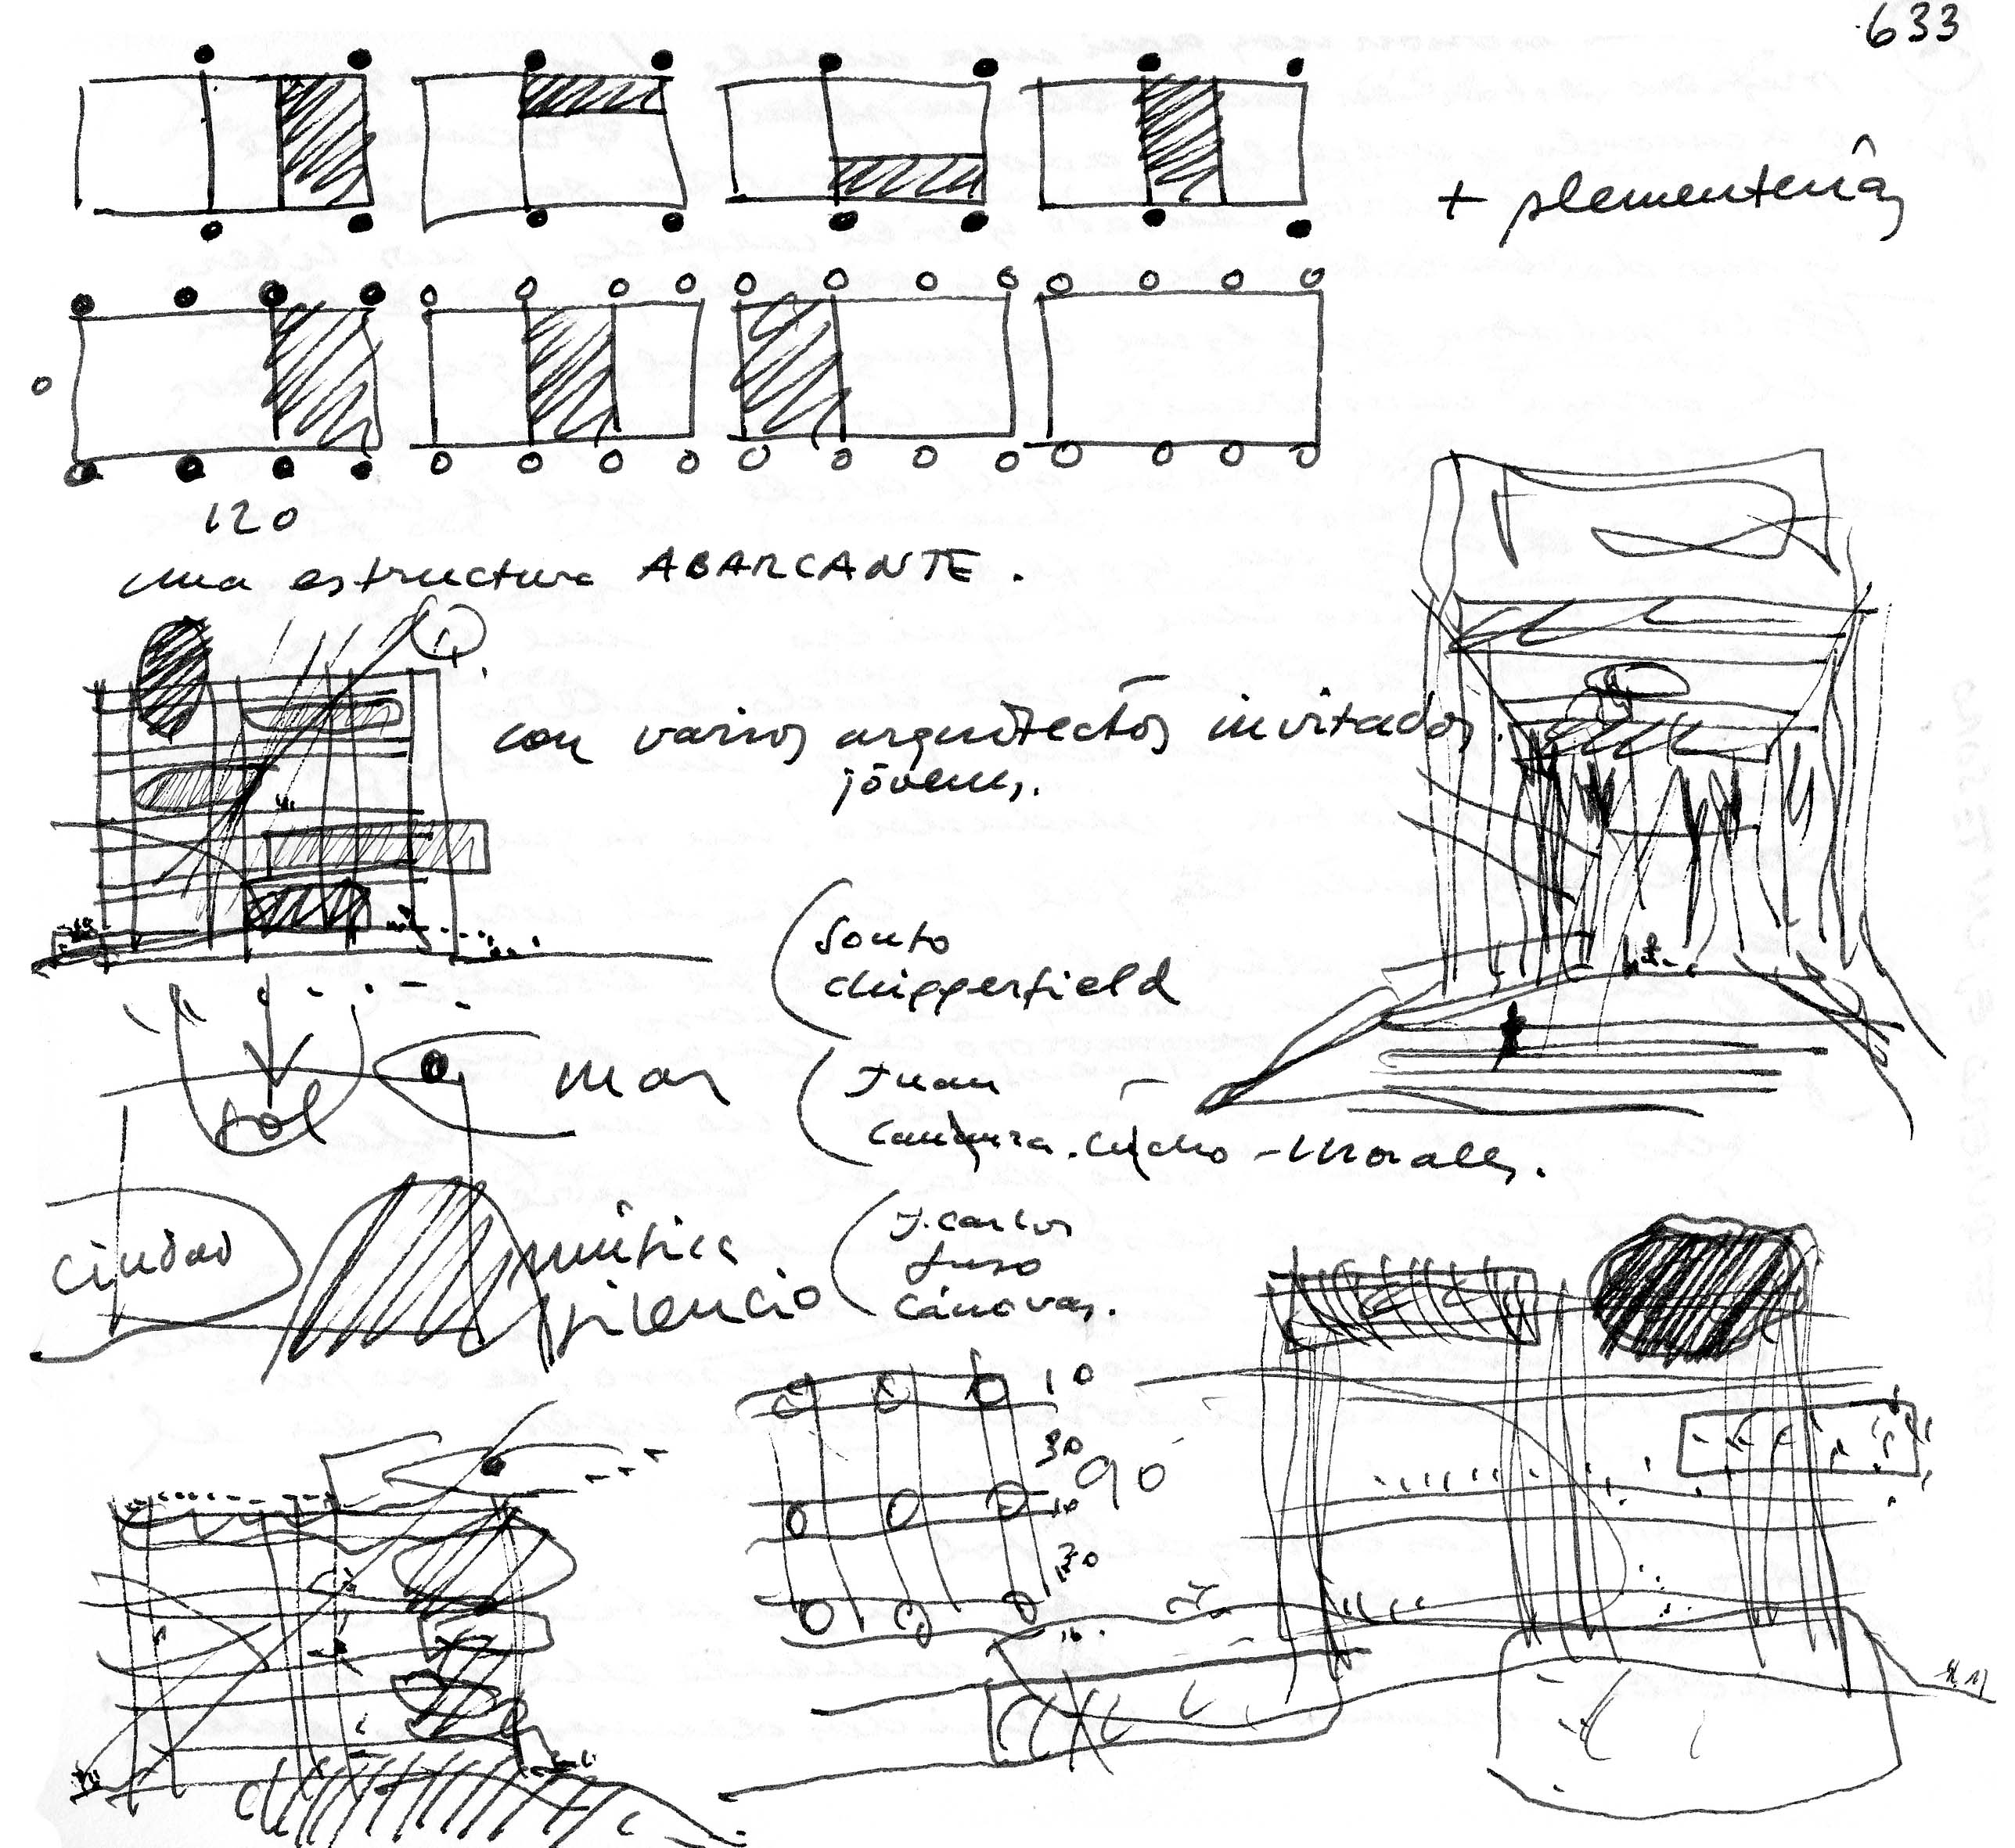 633
+ plementería
120
una estructura ABARCANTE.
con varios arquitectos invitados.
jóvenes.
Souto
chipperfield
sol
mar
Juan
Morales.
ciudad
música
silencio
J. Carlos
Cánovas.
10
30
90
10
30